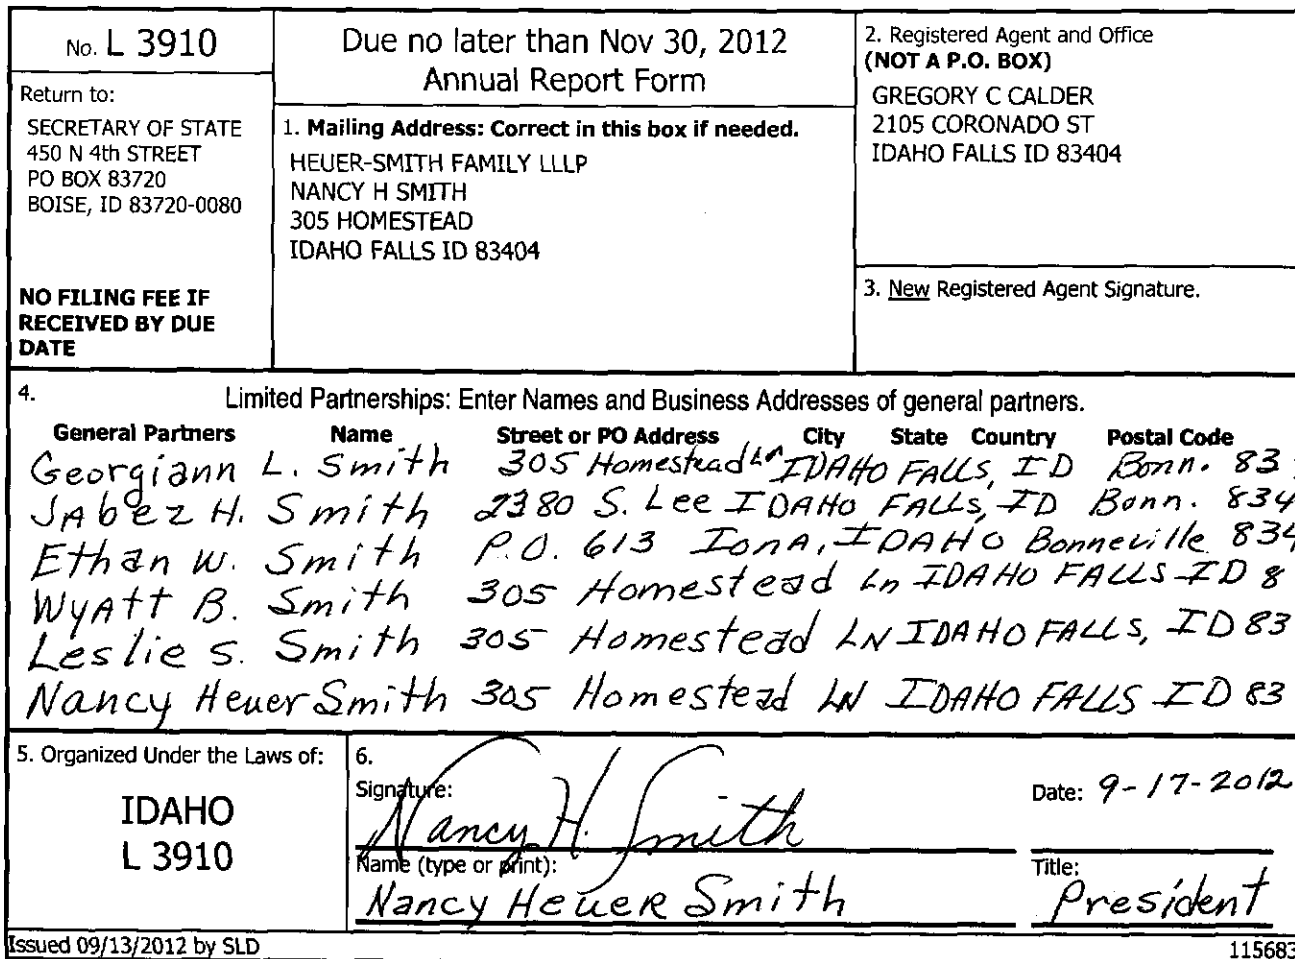 No. L 3910
Return to:
SECRETARY OF STATE
450 N 4th STREET
PO BOX 83720
BOISE, ID 83720-0080
NO FILING FEE IF
RECEIVED BY DUE
DATE
Due no later than Nov 30, 2012
Annual Report Form
1. Mailing Address: Correct in this box if needed.
HEUER-SMITH FAMILY LLLP
NANCY H SMITH
305 HOMESTEAD
IDAHO FALLS ID 83404
2. Registered Agent and Office
(NOT A P.O. BOX)
GREGORY C CALDER
2105 CORONADO ST
IDAHO FALLS ID 83404
3. New Registered Agent Signature.
4. Limited Partnerships: Enter Names and Business Addresses of general partners.
General Partners Name Street or PO Address City State Country Postal Code
Georgiann L. Smith 305 Homestead Ln IDAHO FALLS, ID Bonn. 83
JAbez H. Smith 2380 S. Lee IDAHO FALLS, ID Bonn. 834
Ethan W. Smith P.O. 613 IonA, IDAHO Bonneville 834
WyAtt B. Smith 305 Homestead Ln IDAHO FALLS ID 8
Leslie S. Smith 305 Homestead LN IDAHO FALLS, ID 83
Nancy Heuer Smith 305 Homestead LN IDAHO FALLS ID 83
5. Organized Under the Laws of:
IDAHO
L 3910
6.
Signature: Nancy H. Smith
Date: 9-17-2012
Name (type or print):
Nancy HeueR Smith
Title:
President
Issued 09/13/2012 by SLD
115683